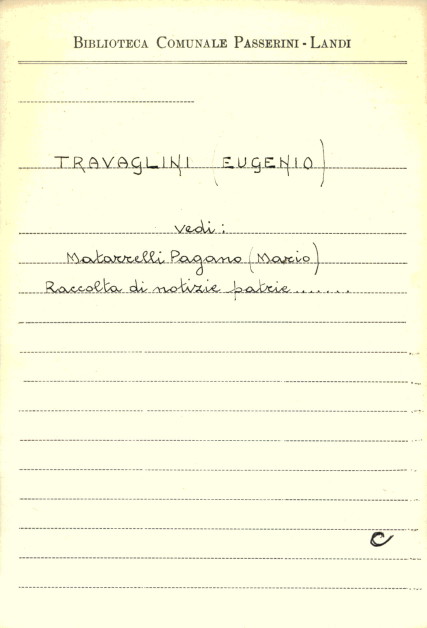 BIBLIOTECA COMUNALE PASSERINI - LANDI
TRAVAGLINI (EUGENIO)
vedi:
Matarrelli Pagano (Mario)
Raccolta di notizie patrie.......
C